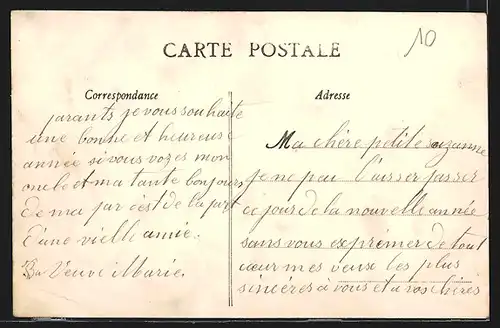 CARTE POSTALE
10
Correspondance
Adresse
Ma chère petite suzanne
je ne peu laisser passer
ce jour de la nouvelle année
sans vous exprimer de tout
cœur mes veux les plus
sincères à vous et a vos chéres
parants je vous souhaite
une bonne et heureuse
année si vous voyes mon
oncle et ma tante bonjours
de ma par c'est de la part
d'une vielle amie.
Veuve Marie